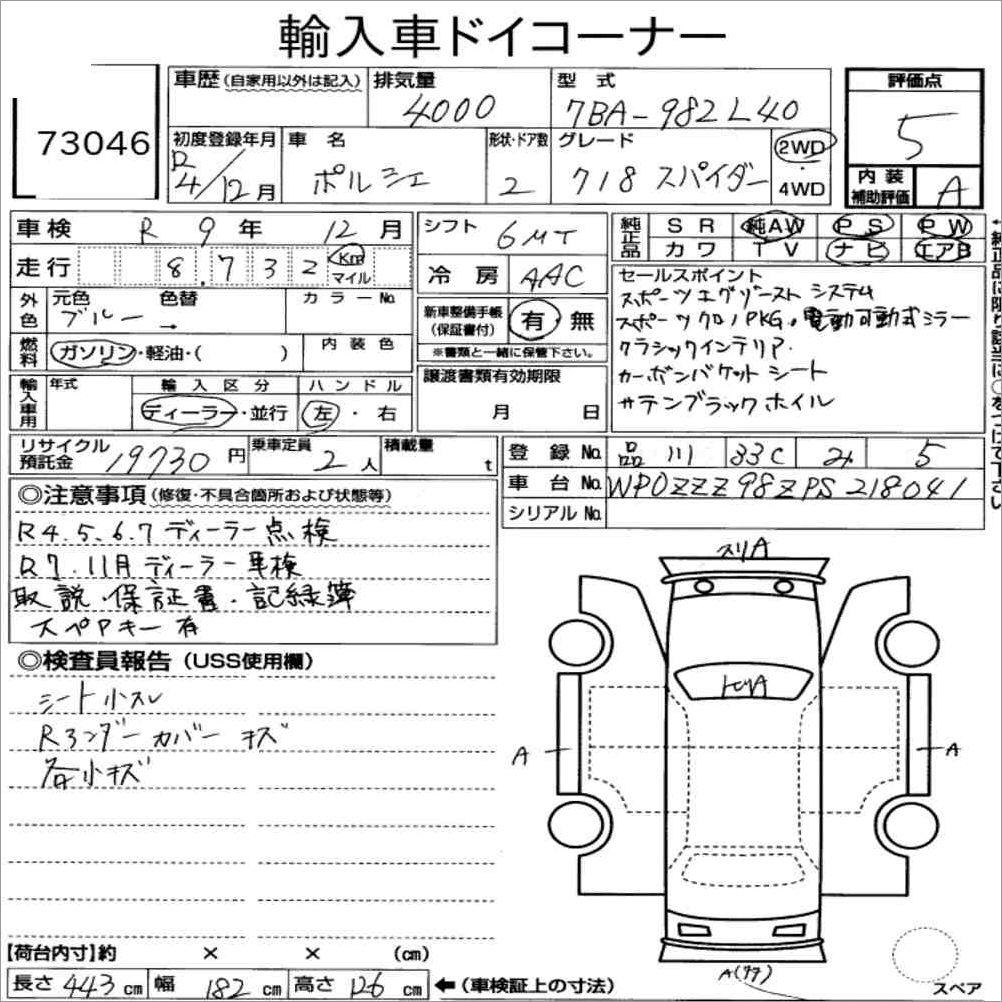 輸入車ドイコーナー
73046
車歴 (自家用以外は記入) 排気量 4000 型式 7BA-982L40
評価点 5
初度登録年月 R 4/12月 車名 ポルシェ 形状・ドア数 2 グレード 718 スパイダー 2WD・4WD
内装補助評価 A
車検 R 9年 12月 シフト 6MT
純正品 SR 純AW PS PW
カワ TV ナビ エアB
走行 8.732 Km マイル 冷房 AAC
外色 元色 ブルー 色替 → カラーNo.
新車整備手帳 (保証書付) 有・無
※書類と一緒に保管下さい。
燃料 ガソリン・軽油・( ) 内装色
輸入車用 年式 輸入区分 ディーラー・並行 ハンドル 左・右
譲渡書類有効期限 月 日
セールスポイント
スポーツエグゾースト システム
スポーツクロノPKG。電動可動式ミラー
クラシックインテリア.
カーボンバケットシート
サテンブラックホイル
リサイクル預託金 19730円 乗車定員 2人 積載量 t
登録No. 品川 33C み 5
車台No. WP0ZZZ98ZPS218041
シリアルNo.
◎注意事項 (修復・不具合箇所および状態等)
R4.5.6.7 ディーラー点検
R7.11月 ディーラー車検
取説.保証書.記録簿
スペアキー有
◎検査員報告 (USS使用欄)
シート小スレ
Rアンダーカバー キズ
各小キズ
スリA
トビA
A
A
A(ワワ)
スペア
【荷台内寸】約 × × (cm)
長さ 443 cm 幅 182 cm 高さ 126 cm ←(車検証上の寸法)